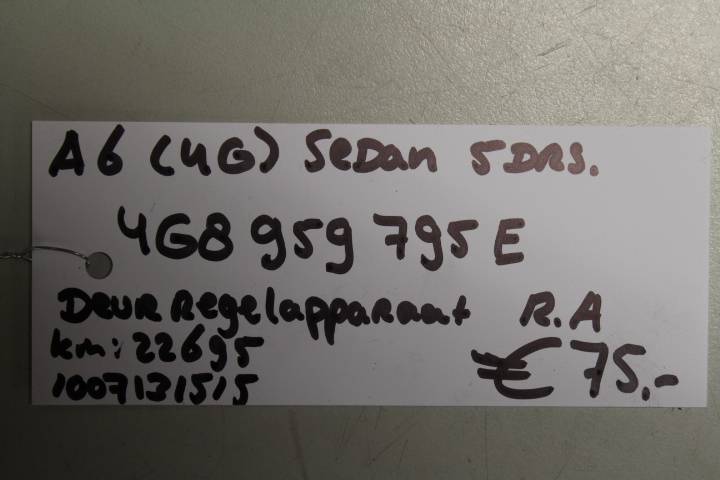 A6 (4G) Sedan 5DRS.
4G8 959 795 E
Deur Regelapparaat R.A
km: 22695 €75.-
1007131515